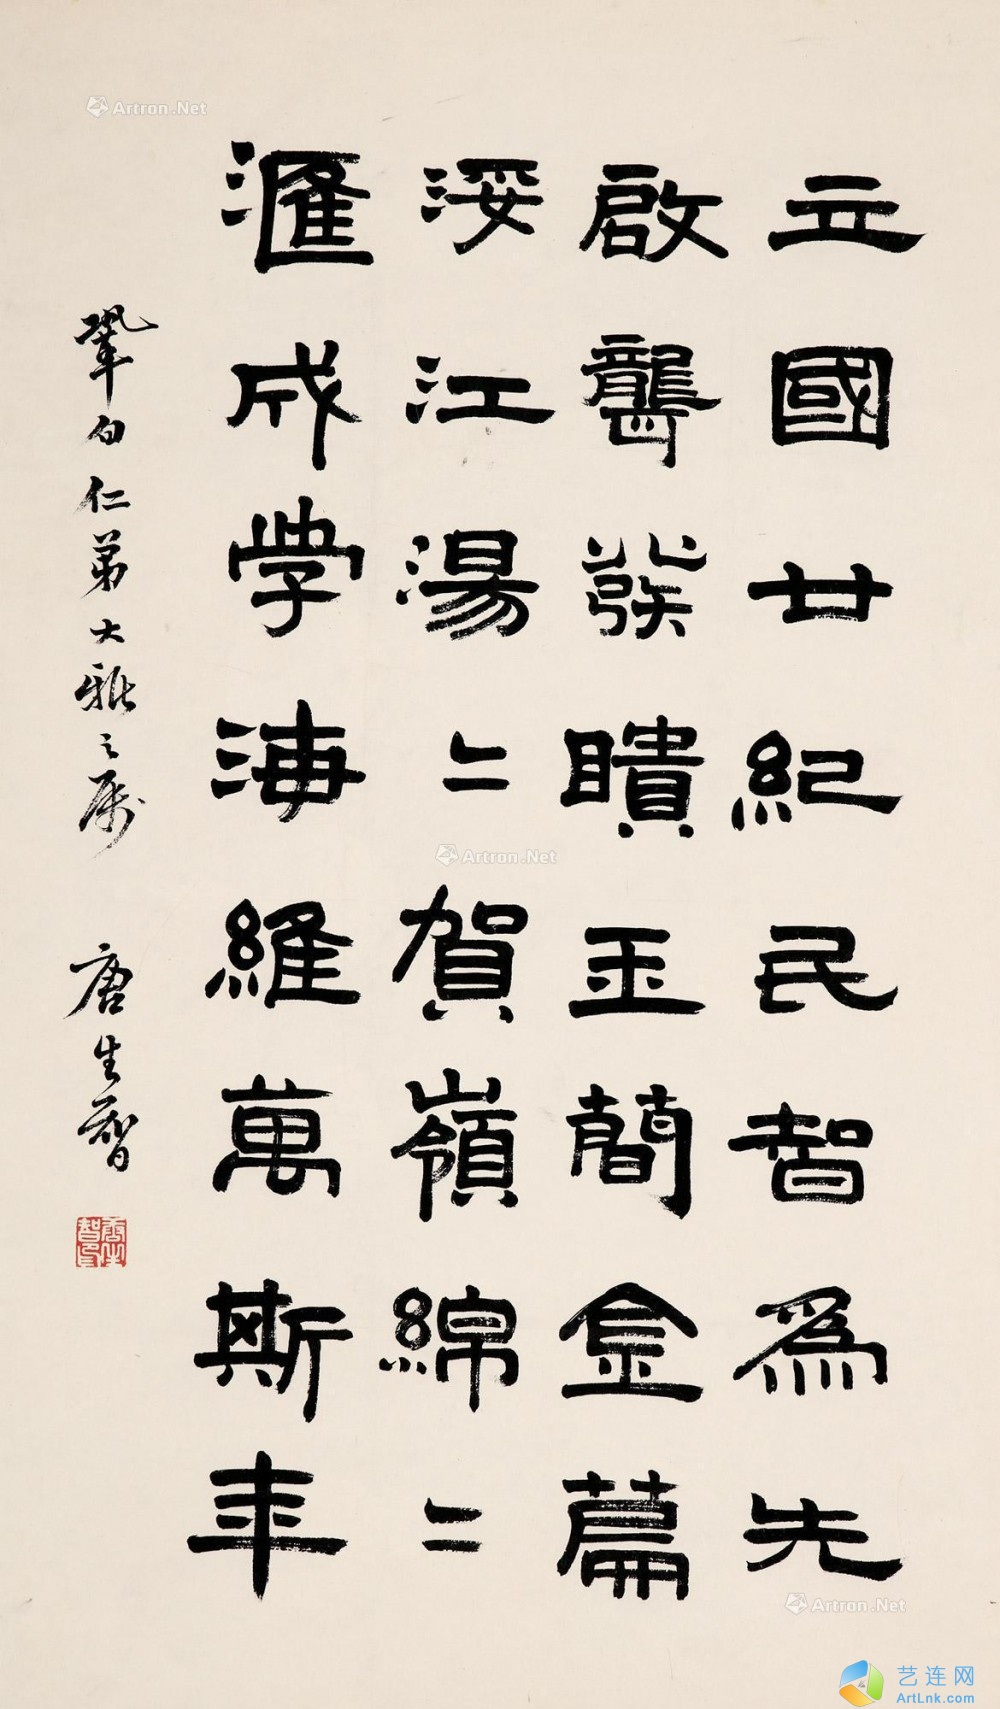 立國廿紀民智爲先
啟聾發瞶玉簡金篇
浽江湯二賀嶺綿二
滙成学海維萬斯年
鞏白仁弟大雅之屬 唐生智
唐生智印
Artron.Net
Artron.Net
Artron.Net
艺连网
ArtLnk.com